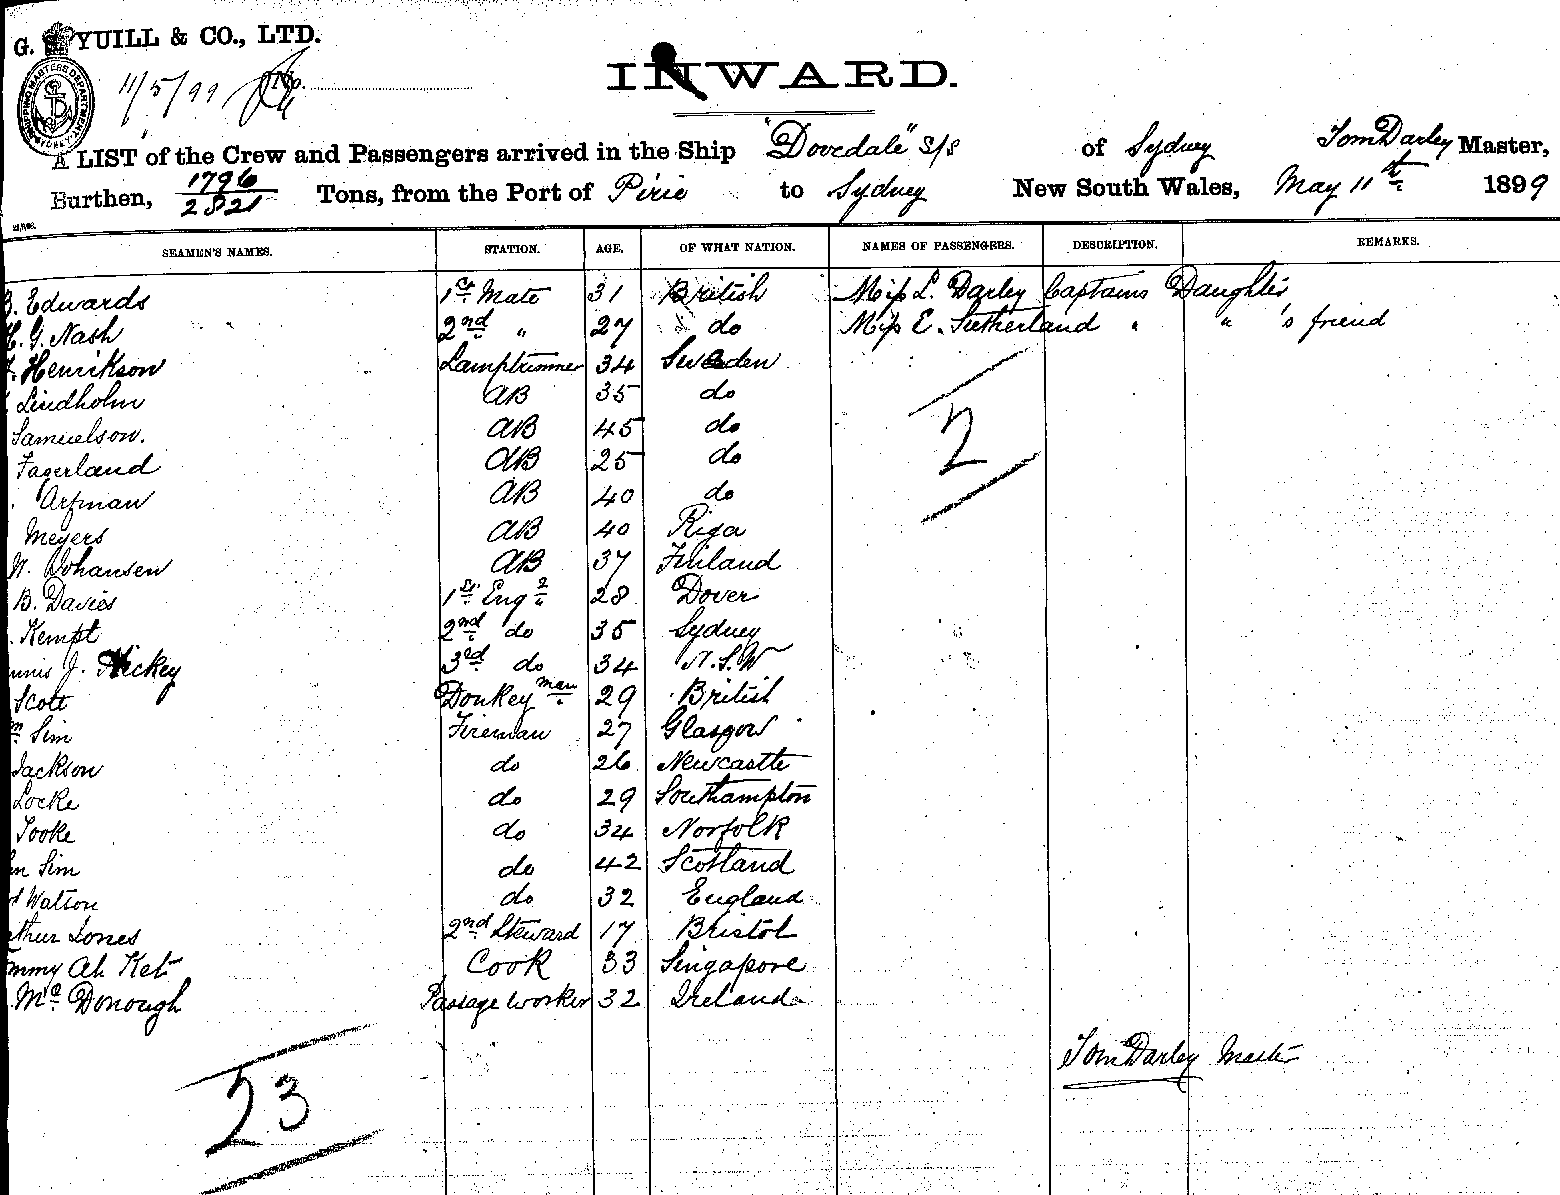 G. YUILL & CO., LTD.
SHIPPING MASTERS DEPARTMENT SYDNEY
11/5/99 No.
INWARD.
A LIST of the Crew and Passengers arrived in the Ship "Dovedale" S/S of Sydney Tom Darley Master,
Burthen, 1796/2821 Tons, from the Port of Pirie to Sydney New South Wales, May 11th 1899
SEAMEN'S NAMES. STATION. AGE, OF WHAT NATION. NAMES OF PASSENGERS. DESCRIPTION. REMARKS.
B. Edwards 1st Mate 31 British Miss L. Darley Captains Daughter
H. G. Nash 2nd " 27 do Miss E. Sutherland " " 's friend
Henrikson Lamptrimmer 34 Sweden
Lindholm AB 35 do
Samuelson. AB 45 do
Fagerland AB 25 do
Arfman AB 40 do
Meyers AB 40 Riga
W. Johansen AB 37 Finland
B. Davies 1st Engr 28 Dover
Kempt 2nd do 35 Sydney
nnis J. Hickey 3rd do 34 N.S.W
Scott Donkey man 29 British
m Sim Fireman 27 Glasgow
Jackson do 26 Newcastle
Locke do 29 Southampton
Tooke do 34 Norfolk
hn Sim do 42 Scotland
Watson do 32 England
rthur Jones 2nd Steward 17 Bristol
ommy Ah Ket Cook 33 Singapore
Mc Donough Passage worker 32 Ireland
2
Tom Darley Master
23